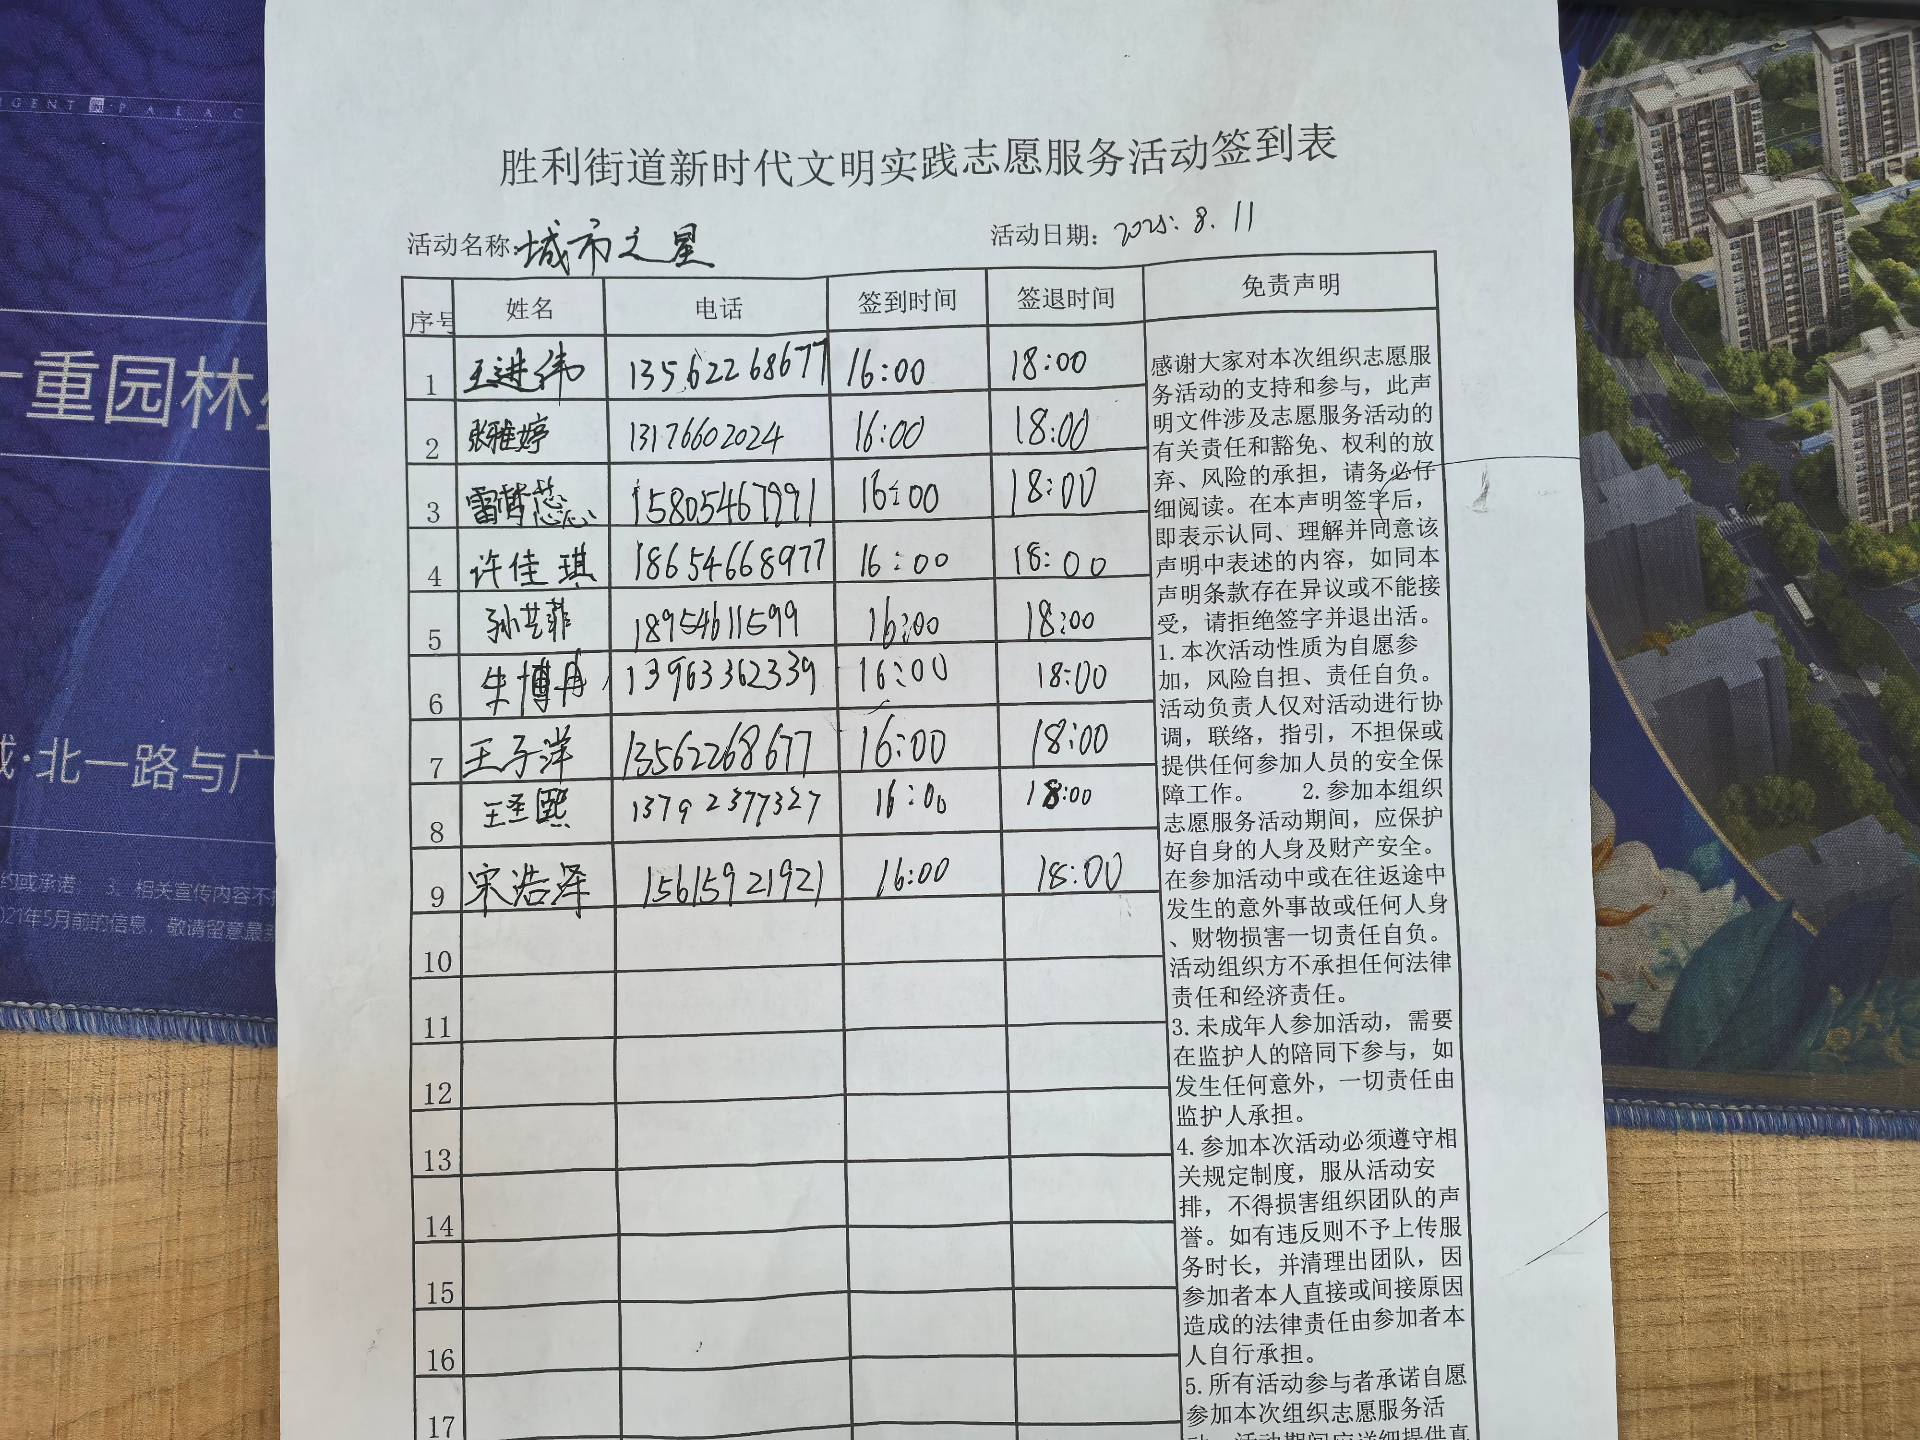 IGENT PALAC
一重园林
北一路与广
约或承诺; 3、相关宣传内容不
021年5月前的信息,敬请留意最新
胜利街道新时代文明实践志愿服务活动签到表
活动名称:城市之星 活动日期:2025.8.11
序号 姓名 电话 签到时间 签退时间 免责声明
1 王进伟 13562268677 16:00 18:00
2 张雅婷 13176602024 16:00 18:00
3 雷 15805467991 16:00 18:00
4 许佳琪 18654668977 16:00 18:00
5 孙艺菲 18954611599 16:00 18:00
6 牛博冉 13963362339 16:00 18:00
7 王子洋 13562268677 16:00 18:00
8 王圣熙 13792377327 16:00 18:00
9 宋浩泽 15615921921 16:00 18:00
10
11
12
13
14
15
16
17
感谢大家对本次组织志愿服
务活动的支持和参与,此声
明文件涉及志愿服务活动的
有关责任和豁免、权利的放
弃、风险的承担,请务必仔
细阅读。在本声明签字后,
即表示认同、理解并同意该
声明中表述的内容,如同本
声明条款存在异议或不能接
受,请拒绝签字并退出活。
1.本次活动性质为自愿参
加,风险自担、责任自负。
活动负责人仅对活动进行协
调,联络,指引,不担保或
提供任何参加人员的安全保
障工作。 2.参加本组织
志愿服务活动期间,应保护
好自身的人身及财产安全。
在参加活动中或在往返途中
发生的意外事故或任何人身
、财物损害一切责任自负。
活动组织方不承担任何法律
责任和经济责任。
3.未成年人参加活动,需要
在监护人的陪同下参与,如
发生任何意外,一切责任由
监护人承担。
4.参加本次活动必须遵守相
关规定制度,服从活动安
排,不得损害组织团队的声
誉。如有违反则不予上传服
务时长,并清理出团队,因
参加者本人直接或间接原因
造成的法律责任由参加者本
人自行承担。
5.所有活动参与者承诺自愿
参加本次组织志愿服务活
动,活动期间应详细提供真